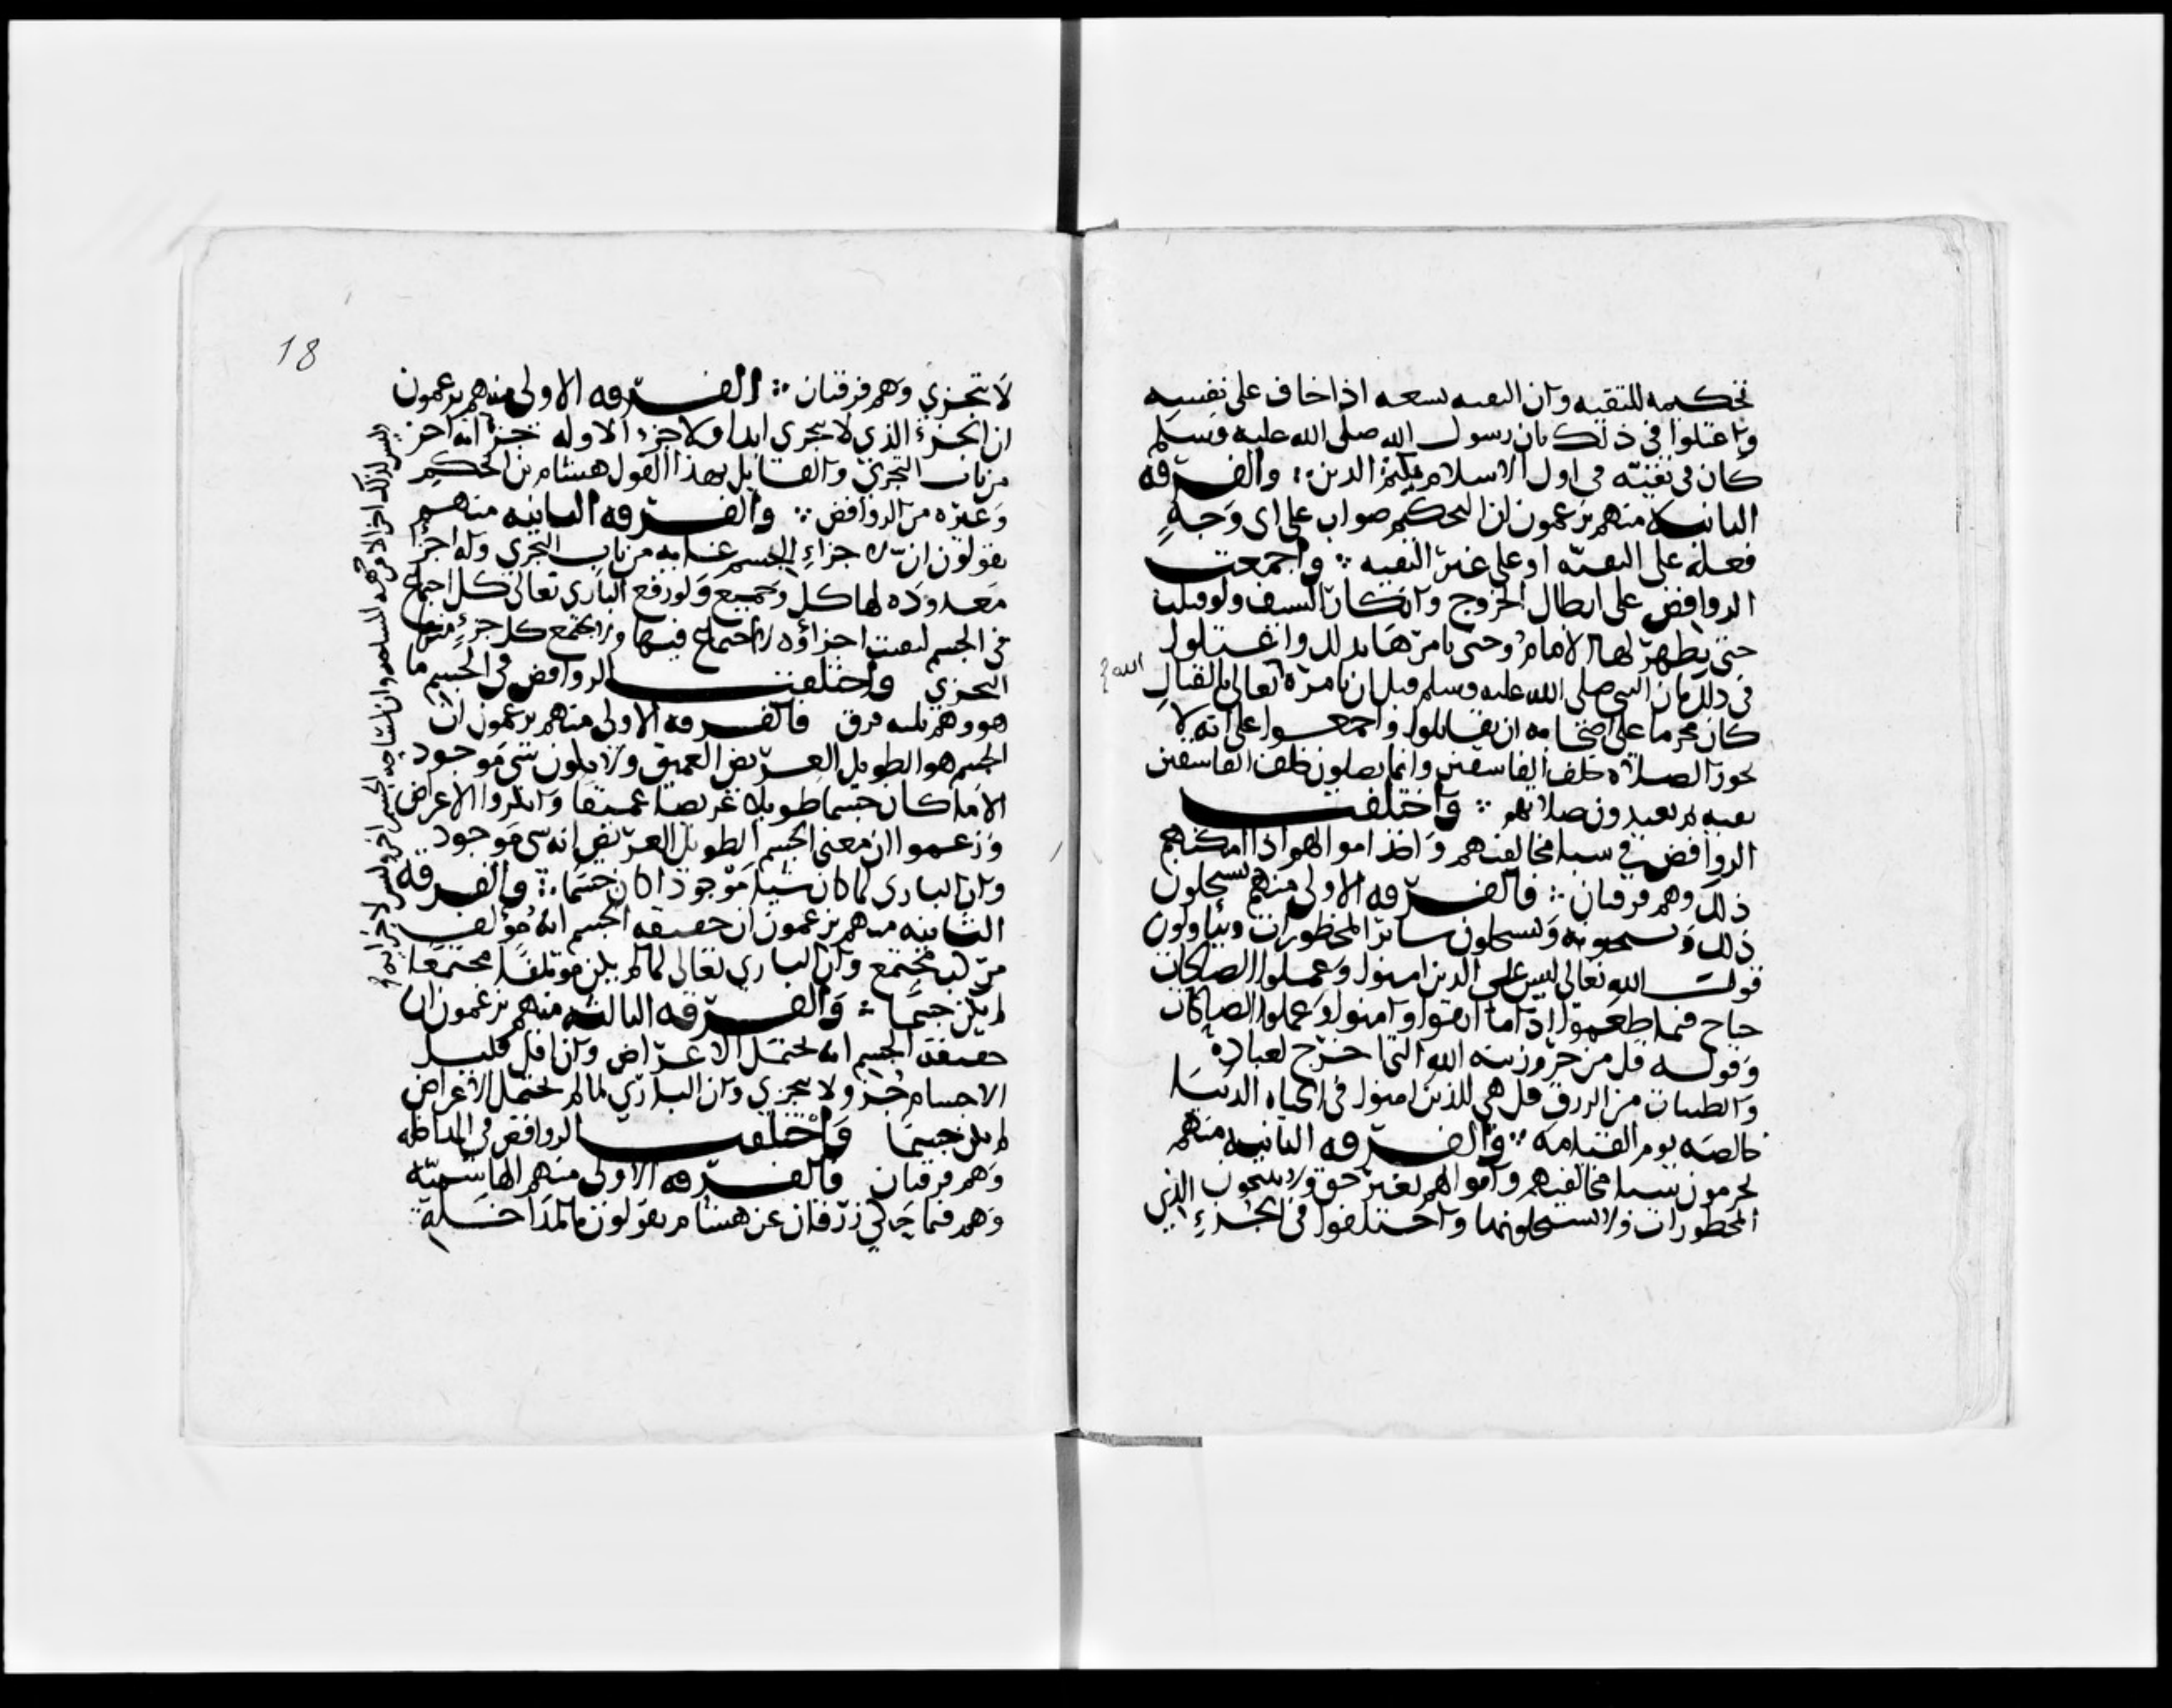 تحكيمه للتقيه وان التقيه تسعه اذا خاف على نفسه
واعتلوا في ذلك بان رسول الله صلى الله عليه وسلم
كان في تقيته في اول الاسلام يكتم الدين ؛ والفرقه
الثانيه منهم يزعمون ان التحكيم صواب على اى وجهٍ
فعله على التقيّه او على غير التقيه ؛ واجمعت
الروافض على ابطال الخروج وانكار السيف ولو قتلت
حتى يظهر لها الامام وحتى يامرها بذلك واعتلوا
في ذلك بان النبي صلى الله عليه وسلم قبل ان يامره تعالى بالقتال
الله
كان محرما على اصحابه ان يقاتلوا واجمعوا على انه لا
تجوز الصلاة خلف الفاسقين وانما يصلون خلف الفاسقين
تقيه ثم يعيدون صلاتهم ؛ واختلفت
الروافض في سبا مخالفيهم واخذ اموالهم اذا امكنهم
ذلك وهم فرقتان ؛ فالفرقه الاولى منهم يستحلون
ذلك ويستحبونه ويستحلون سائر المحظورات ويتاولون
قول الله تعالى ليس على الذين امنوا وعملوا الصالحات
جناح فيما طعموا اذا ما اتقوا وامنوا وعملوا الصالحات
وقوله قل من حرم زينه الله التي اخرج لعباده
والطيبات من الرزق قل هي للذين امنوا في الحياه الدنيا
خالصه يوم القيامه ؛ والفرقه الثانيه منهم
يحرمون سبا مخالفيهم واموالهم بغير حق ولا يبيحون
المحظورات ولا يستحلونها واختلفوا في الجزءِ الذي
18
لا يتجزي وهم فرقتان ؛ الفرقه الاولى منهم يزعمون
ان الجزء الذي لا يتجزى ابدا ولا جزء الا وله جزء انه اخر
من باب التجزي والقايل بهذا القول هشام بن الحكم
وغيره من الروافض ؛ والفرقه الثانيه منهم
يقولون ان لاجزاءِ الجسم غايه من باب التجزي وله اجزا
معدوده لها كل وجميع ولو رفع الباري تعالى كل اجتماع
في الجسم لبقيت اجزاؤه لا اجتماع فيها ولا يجتمع كل جزءٍ منها
التجزي واختلفت الروافض في الجسم ما
هو وهم ثلثه فرق فالفرقه الاولى منهم يزعمون ان
الجسم هو الطويل العريض العميق ولا يكون شي موجود
الا ما كان جسما طويلا عريضا عميقا وانكروا الاعراض
وزعموا ان معنى الجسم الطويل العريض انه شي موجود
وان البارى لما كان شيا موجودا كان جسما ؛ والفرقه
الثانيه منهم يزعمون ان حقيقه الجسم انه مؤلف
مركب مجتمع وان البارى تعالى لما لم يكن موتلفا مجتمعا
لم يكن جسما ؛ والفرقه الثالثه منهم يزعمون ان
حقيقه الجسم انه يحتمل الاعراض وان اقل قليل
الاجسام جزو لا يتجزي وان الباري لما لم يحتمل الاعراض
لم يكن جسما واختلفت الروافض في المداخله
وهم فرقتان فالفرقه الاولى منهم الهاشميّه
وهم فيما حكى زرقان عن هشام يقولون بالمداخله